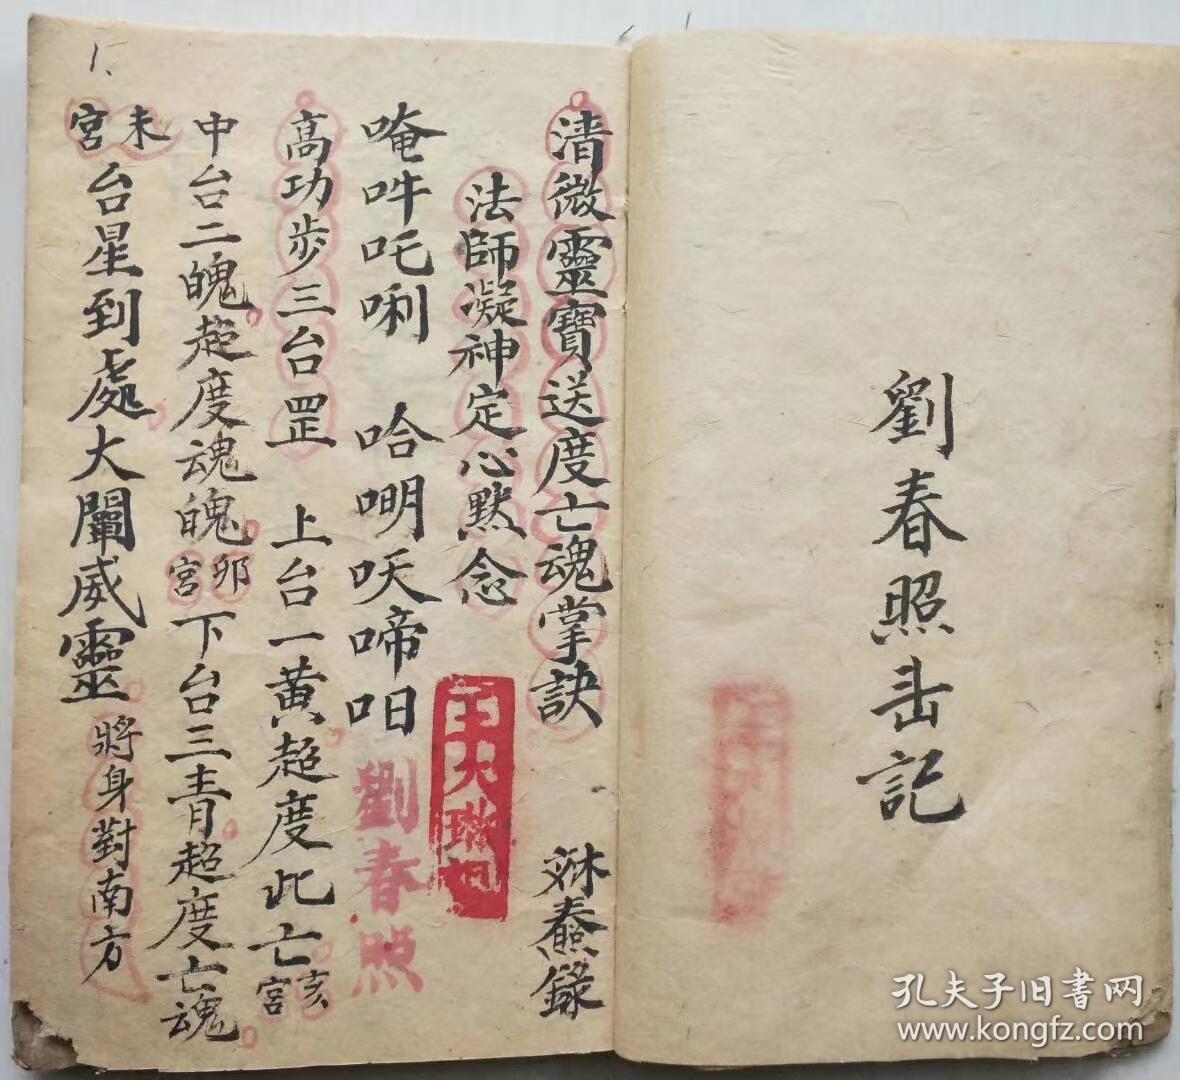 劉春照击記
清微靈寶送度亡魂掌訣
法師凝神定心默念
唵吽吒唎 哈𠵇呋啼呬
劉春照
高功步三台罡 上台一黄超度此亡 亥宮
中台二魄超度魂魄 卯宮 下台三青超度亡魂
未宮 台星到處大闡威靈 將身對南方
1、
孔夫子旧書网
www.kongfz.com